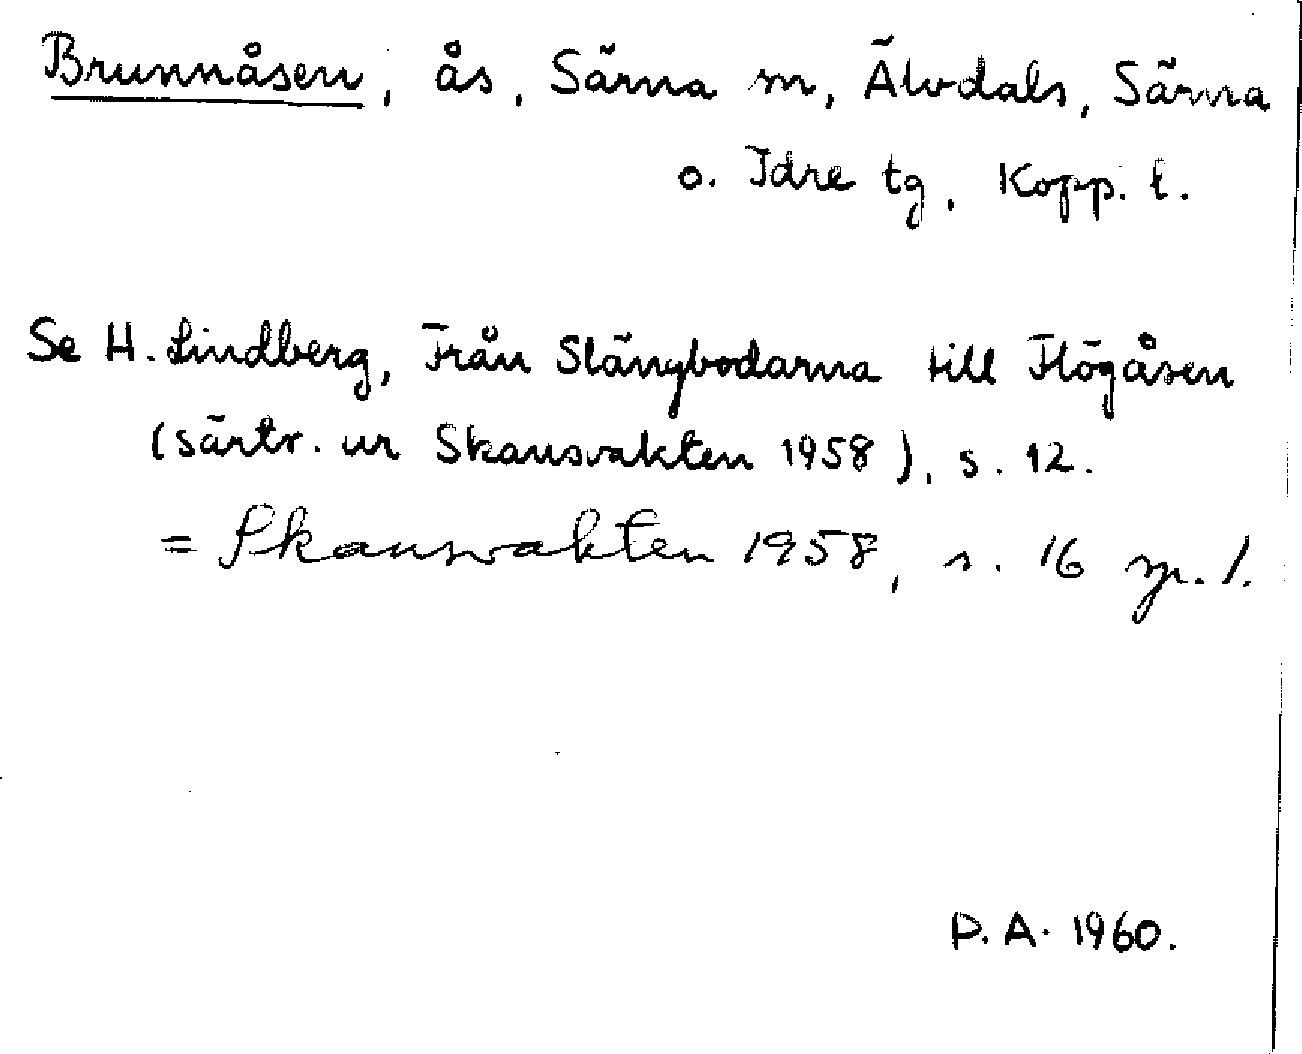 Brunnåsen, ås, Särna sn, Älvdals, Särna
o. Idre tg, Kopp. l.
Se H. Lindberg, Från Slängbodarna till Flögåsen
(särtr. ur Skansvakten 1958), s. 12.
= Skansvakten 1958, s. 16 sp. 1.
P. A. 1960.